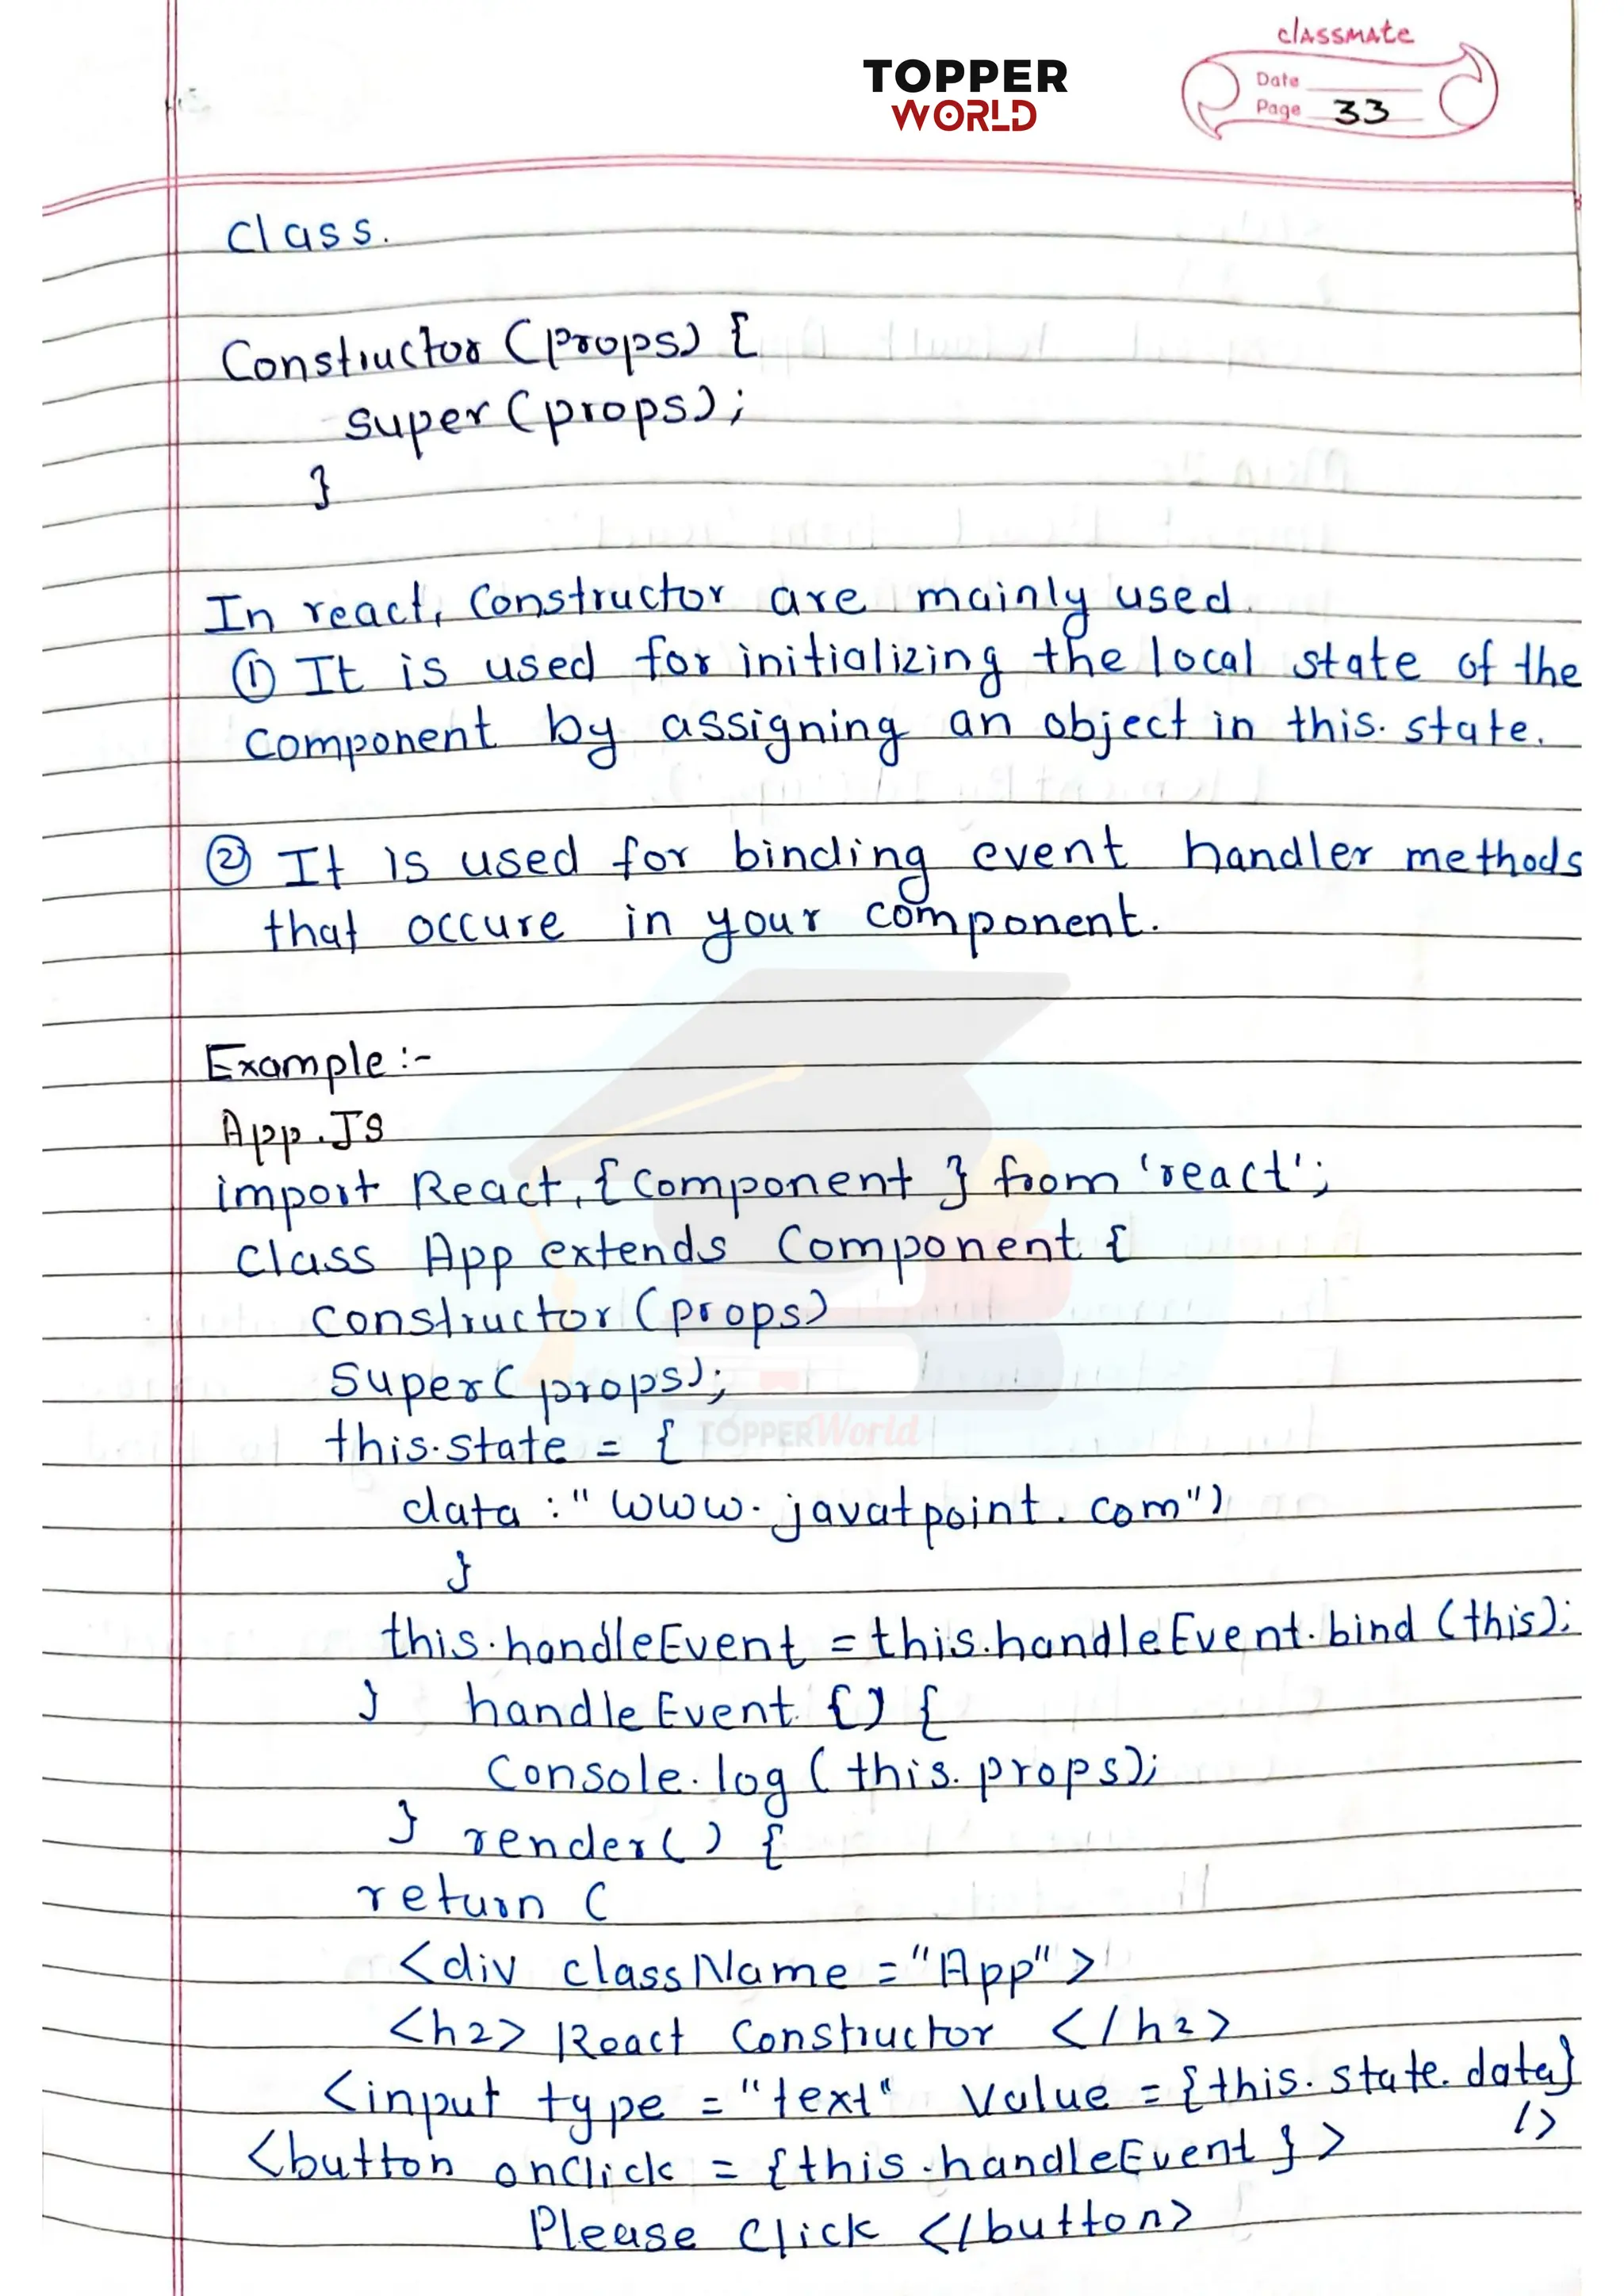 classmate
TOPPER
WORLD
Date
Page 33
class.
Constructor (props) {
super (props);
}
In react, Constructor are mainly used.
① It is used for initializing the local state of the
component by assigning an object in this.state.
② It is used for binding event handler methods
that occure in your component.
Example :-
App.JS
import React, { Component } from 'react';
class App extends Component {
constructor (props)
super( props);
this.state = {
TOPPERWorld
data : "www.javatpoint.com")
}
this.handleEvent = this.handleEvent.bind (this);
} handleEvent {} {
Console.log ( this.props);
} render() {
return (
<div className = "App">
<h2> React Constructor </h2>
<input type = "text" Value = {this.state.data}
/>
<button onclick = {this.handleEvent } >
Please Click </button>